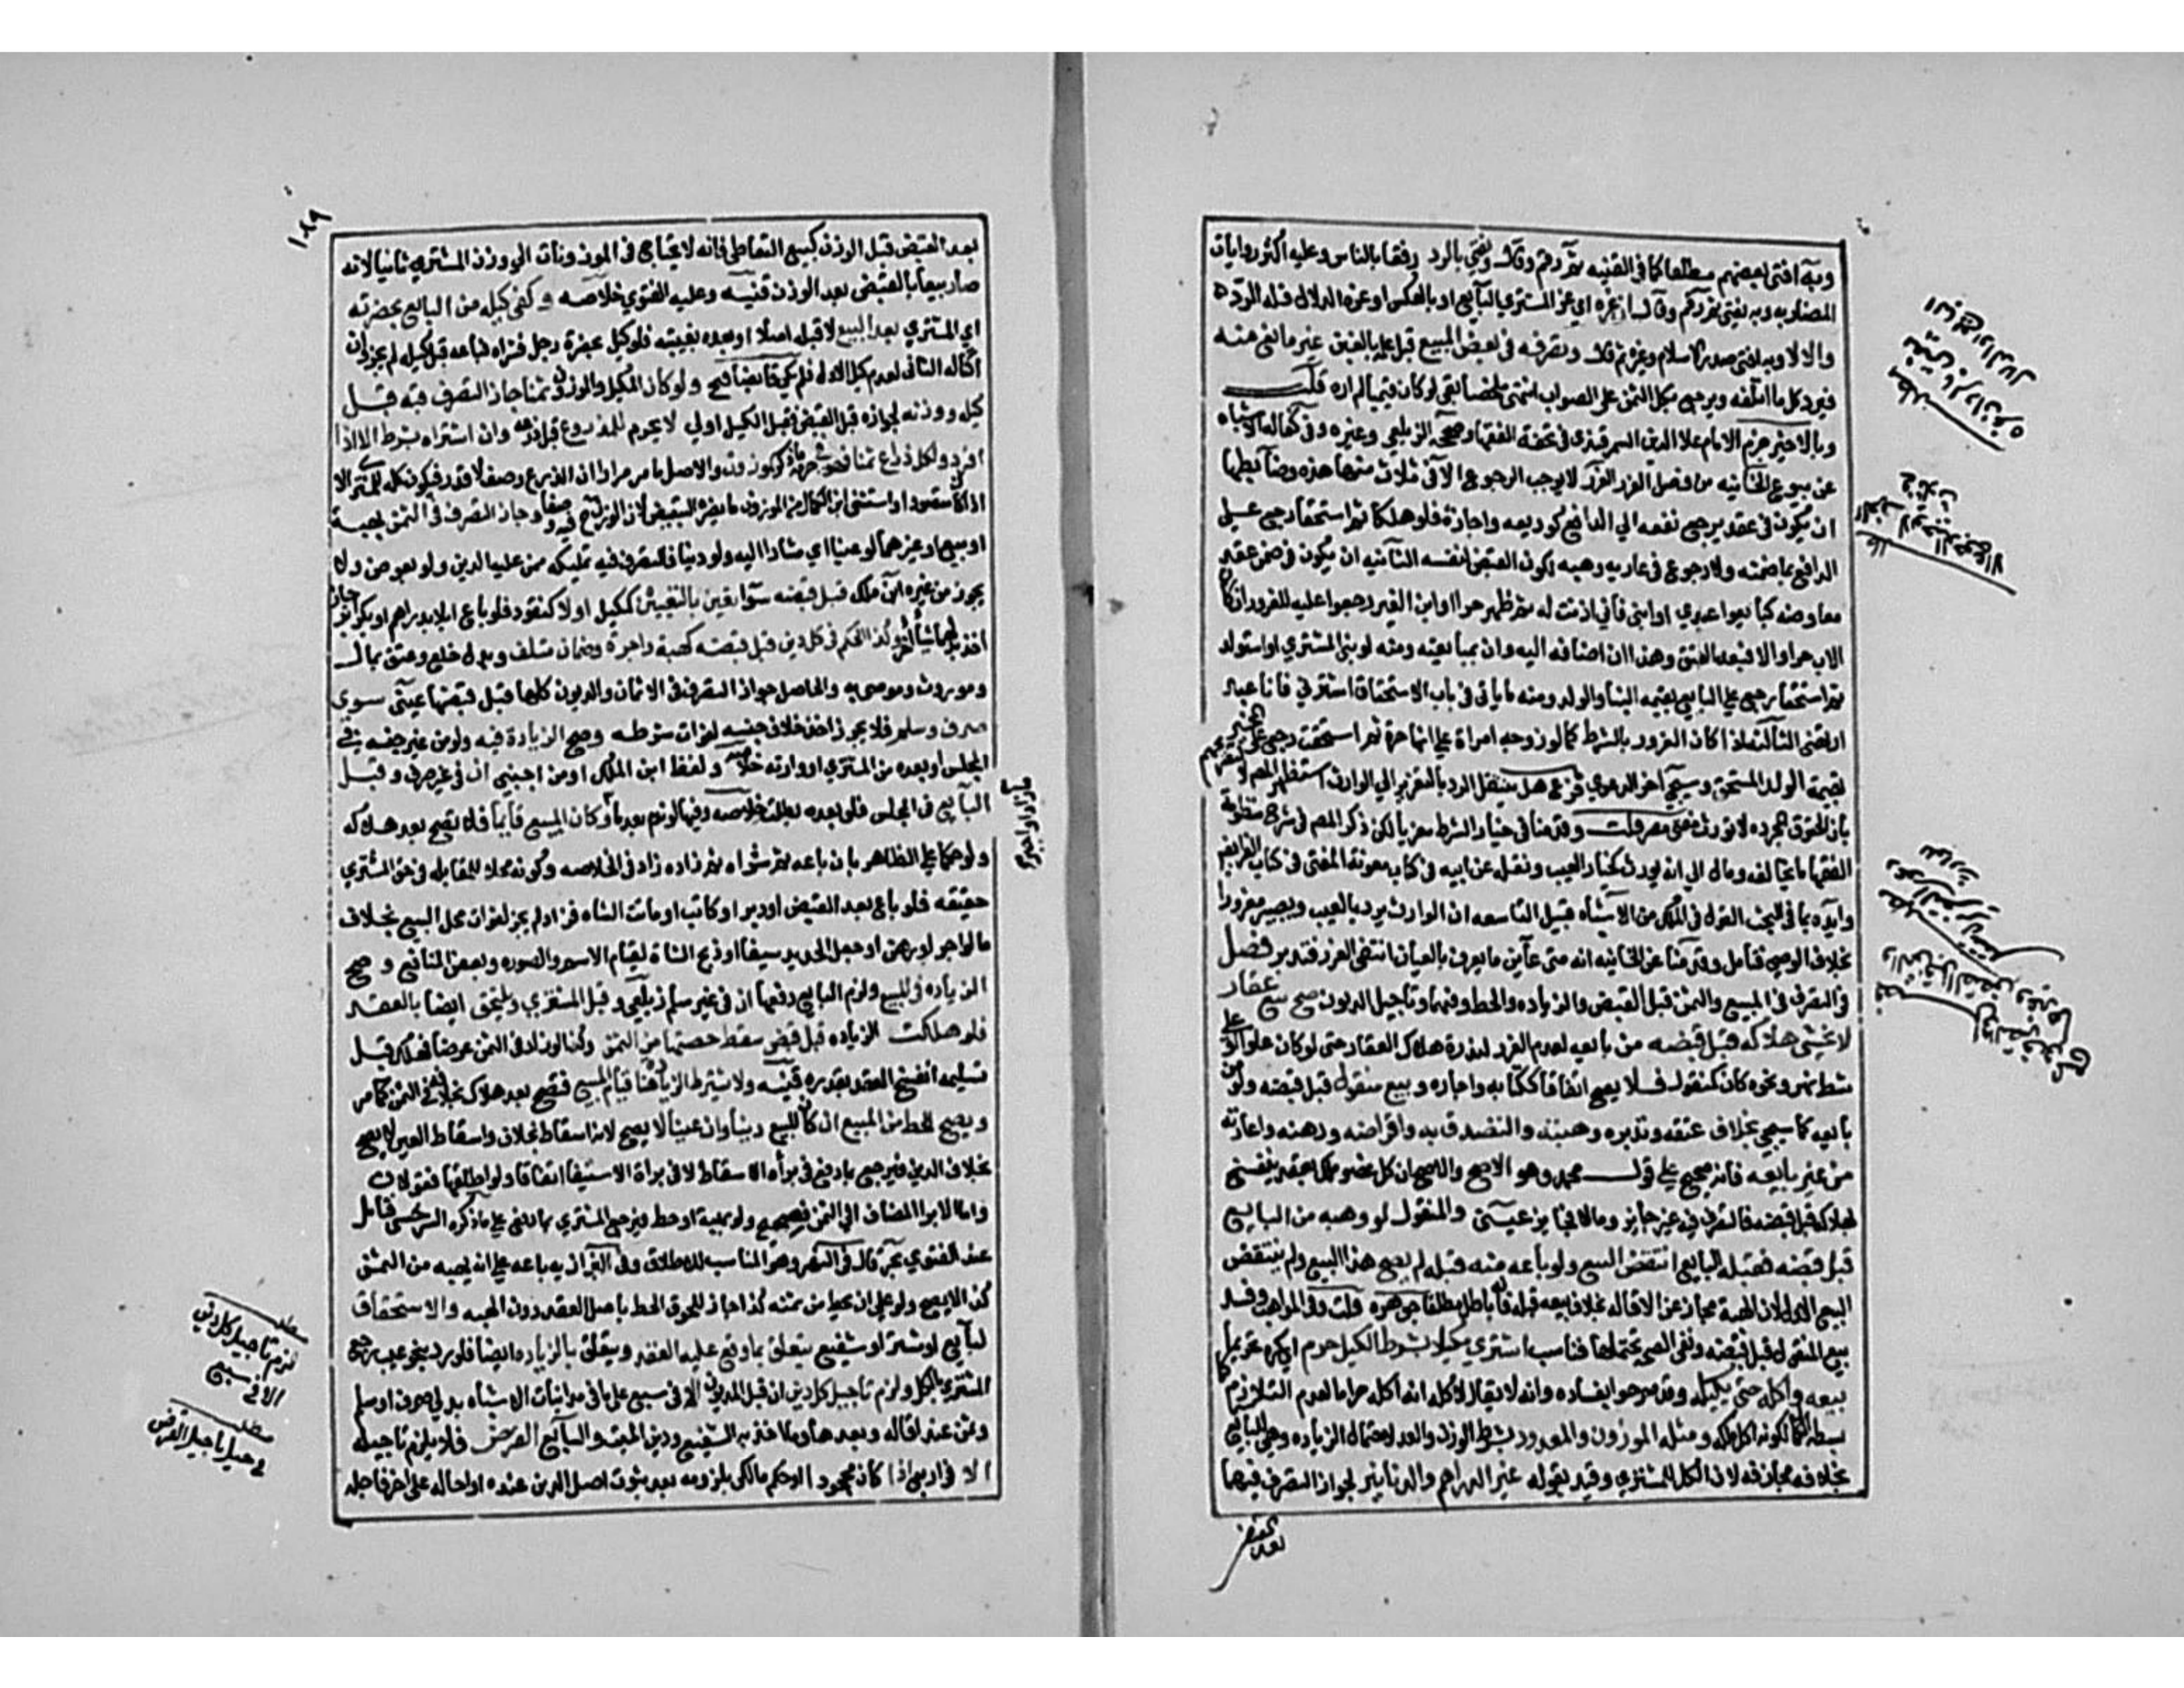 وبه افتى بعضهم مطلقا كما في القنيه ثم رقم وقال ويفتى بالرد رفقا بالناس وعليه أكثر روايات
المضاربه وبه يفتى ثم رقم وقال ان غره اي غر المشتري البايع او بالعكس او غره الدلال فله الرد
والا لا وبه افتى صدر الاسلام وغيره ثم قال وتصرفه في بعض المبيع قبل علمه بالغبن غير مانع منه
فيرد مثل ما اتلفه ويرجع بكل الثمن على الصواب انتهى ملخصا بقي لو كان قيميا لم اره قلت
وبالاخير جزم الامام علا الدين السمرقندي في تحفة الفقها وصححه الزيلعي وغيره وفي كفالة الاشباه
عن بيوع الخانيه من فصل الغرر الغرر لا يوجب الرجوع الا في ثلاث منها هذه وضابطها
ان يكون في عقد يرجع نفعه الي الدافع كوديعه واجارة فلو هلكا ثم استحقا رجع على
الدافع بما ضمنه ولا رجوع في عاريه وهبه لكون القبض لنفسه الثانيه ان يكون في ضمن عقد
معاوضه كبايعوا عبدي او ابني فاني اذنت له ثم ظهر حرا او ابن الغير رجعوا عليه للغرور ان كان
الاب حرا والا فبعد العتق وهذا ان اضافه اليه وان بمبايعته ومنه لو بنى المشتري او استولد
ثم استحقا رجع علي البايع بقيمه البنا والولد ومنه ما ياتي في باب الاستحقاق اشترني فانا عبد
ارتهني الثالثه اذا كان الغرور بالشرط كما لو زوجه امراة علي انها حرة ثم استحقت رجع على المخبر
بقيمة الولد المستحق وسيجي آخر الدعوي فرع هل ينتقل الرد بالتغرير الي الوارث استظهر المص لا لتصريحهم
بان الحقوق المجرده لا تورث قلت وقدمنا في خيار الشرط معزيا لكن ذكر المص في شرح منظومة
الفقها ما يخالفه ومال الي انه يورث كخيار العيب ونقله عن ابيه في كتابه معونة المفتى في كتاب الفرايض
وايده بما في البحث القول في الملك من الاشباه قبيل التاسعه ان الوارث يرد بالعيب ويصير مغرورا
بخلاف الوصي فتامل وقدمنا عن الخانيه انه متى عاين ما يعرف بالعيان انتفى الغرر فتدبر فصل
في التصرف في المبيع والثمن قبل القبض والزياده والحط وفيهما وتاجيل الديون صح بيع عقار
لا يخشى هلاكه قبل قبضه من بايعه لعدم الغرر لندرة هلاك العقار حتى لو كان علوا او على
شط نهر ونحوه كان كمنقول فلا يصح اتفاقا ككتابه واجاره وبيع منقول قبل قبضه ولو من
بايعه كما سيجي بخلاف عتقه وتدبيره وهبته والتصدق به واقراضه ورهنه واعارته
من غير بايعه فانه صحيح على قول محمد وهو الاصح والاصل ان كل عوض ملك بعقد ينفسخ
بهلاكه قبل قبضه فالتصرف فيه غير جايز وما لا فجايز عيني والمنقول لو وهبه من البايع
قبل قبضه فقبله البايع انتقض البيع ولو باعه منه قبله لم يصح هذا البيع ولم ينتقض
البيع الاول لان الهبة مجاز عن الاقاله بخلاف بيعه قبله فانه باطل مطلقا جوهره قلت وفي المواهب وفسد
بيع المنقول قبل قبضه ونفى الصحه يحتملهما فتاسب اشتري مكيلا بشرط الكيل حرم اي كره تحريما
بيعه واكله حتى يكيله وقد صرحوا بفساده وانه لا يقال لاكله انه اكل حراما لعدم التلازم كما
بسطه الكمال لكونه اكل ملكه ومثله الموزون والمعدود بشرط الوزن والعد لاحتمال الزياده وهي للبايع
بخلافه مجازفه لان الكل للمشتري وقيد بقوله غير الدراهم والدنانير لجواز التصرف فيهما
بعد القبض
١٨٩
بعد القبض قبل الوزن كبيع التعاطي فانه لا يحتاج في الموزونات الى وزن المشتري ثانيا لانه
صار بيعا بالقبض بعد الوزن قنيه وعليه الفتوي خلاصه وكفى كيله من البايع بحضرته
اي المشتري بعد البيع لا قبله اصلا او بعده بغيبته فلو كيل بحضرة رجل فشراه فباعه قبل كيله لم يجز وان
اكتاله الثاني لعدم كيل الاول فلم يكن قابضا فتح ولو كان المكيل والموزون ثمنا جاز التصرف فيه قبل
كيله ووزنه لجوازه قبل القبض فقبل الكيل اولي لا يحرم المذروع قبل ذرعه وان اشتراه بشرط الا اذا
افرد لكل ذراع ثمنا فهو في حرمة ما ذكر كموزون والاصل ما مر مرارا ان الذرع وصف لا قدر فيكون كله للمشتري الا
اذا كان مقصودا واستثنى ابن الكمال من الموزون ما يضره التبعيض لان الوزن فيه وصف وجاز التصرف في الثمن بهبة
او بيع او غيرهما لو عينا اي مشارا اليه ولو دينا فالتصرف فيه تمليكه ممن عليه الدين ولو بعوض ولا
يجوز من غيره ابن ملك قبل قبضه سوآ تعين بالتعيين كمكيل اولا كنقود فلو باع ابلا بدراهم او بكر بر جاز
اخذ بدلهما شيئا آخر وكذا الحكم في كل دين قبل قبضه كمهر واجرة وضمان متلف وبدل خلع وعتق بمال
وموروث وموصى به والحاصل جواز التصرف في الاثمان والديون كلها قبل قبضها عيني سوى
صرف وسلم فلا يجوز اخذ خلاف جنسه لفوات شرطه وصح الزيادة فيه ولو من غير جنسه في
المجلس او بعده من المشتري او وارثه خلاصه ولفظ ابن الملك او من اجنبي ان في غير صرف وقبل
البايع في المجلس فلو بعده بطلت خلاصه وفيها لو ندم بعد ما وكان المبيع قايما فلا تصح بعد هلاكه
ولو حكما علي الظاهر بان باعه ثم شراه ثم زاده زاد في الخلاصه وكونه محلا للمقابله في حق المشتري
حقيقه فلو باع بعد القبض او دبر او كاتب او ماتت الشاه فزاد لم يجز لفوات محل البيع بخلاف
ما لو اجر او رهن او جعل الحديد سيفا او ذبح الشاة لقيام الاسم والصوره وبعض المنافع وصح
الزياده في المبيع ولزم البايع دفعها ان في غير سلم زيلعي وقبل المشتري ويلتحق ايضا بالعقد
فلو هلكت الزياده قبل قبض سقط حصتها من الثمن وكذا لو زاد في الثمن عرضا فهلك قبل
تسليمه انفسخ العقد بقدره قنيه ولا يشترط للزياده هنا قيام المبيع فتصح بعد هلاكه بخلافه في الثمن كما مر
ويصح الحط من المبيع ان كان المبيع دينا وان عينا لا يصح لانه اسقاط واسقاط العين لا يصح
بخلاف الدين فيرجع بما دفع في براة الاسقاط لا في براة الاستيفا اتفاقا ولو اطلقها فقولان
واما الابرا المضاف الي الثمن فصحيح ولو بهبة او حط فيرجع المشتري بما دفع على ما ذكره السرخسي فتامل
عند الفتوي بحر قال في النهر وهو المناسب للاطلاق وفي البزازيه باعه على ان يهبه من الثمن
كذا لا يصح ولو على ان يحط من ثمنه كذا جاز للحوق الحط باصل العقد دون الهبه والاستحقاق
لبايع او مشتر او شفيع يتعلق بما وقع عليه العقد ويتعلق بالزياده ايضا فلو رد بنحو عيب رجع
المشتري بالكل ولزم تاجيل كل دين ان قبل المديون الا في سبع على ما في مداينات الاشباه بدلي صرف او سلم
وثمن عند اقاله وبعدها وما اخذ به الشفيع ودين الميت والسابع القرض فلا يلزم تاجيله
الا في اربع اذا كان مجحودا او حكم مالكي بلزومه بعد ثبوت اصل الدين عنده او احاله على اخر فاجله
لزم تاجيل كل دين
الا في سبع
في حيل تاجيل القرض